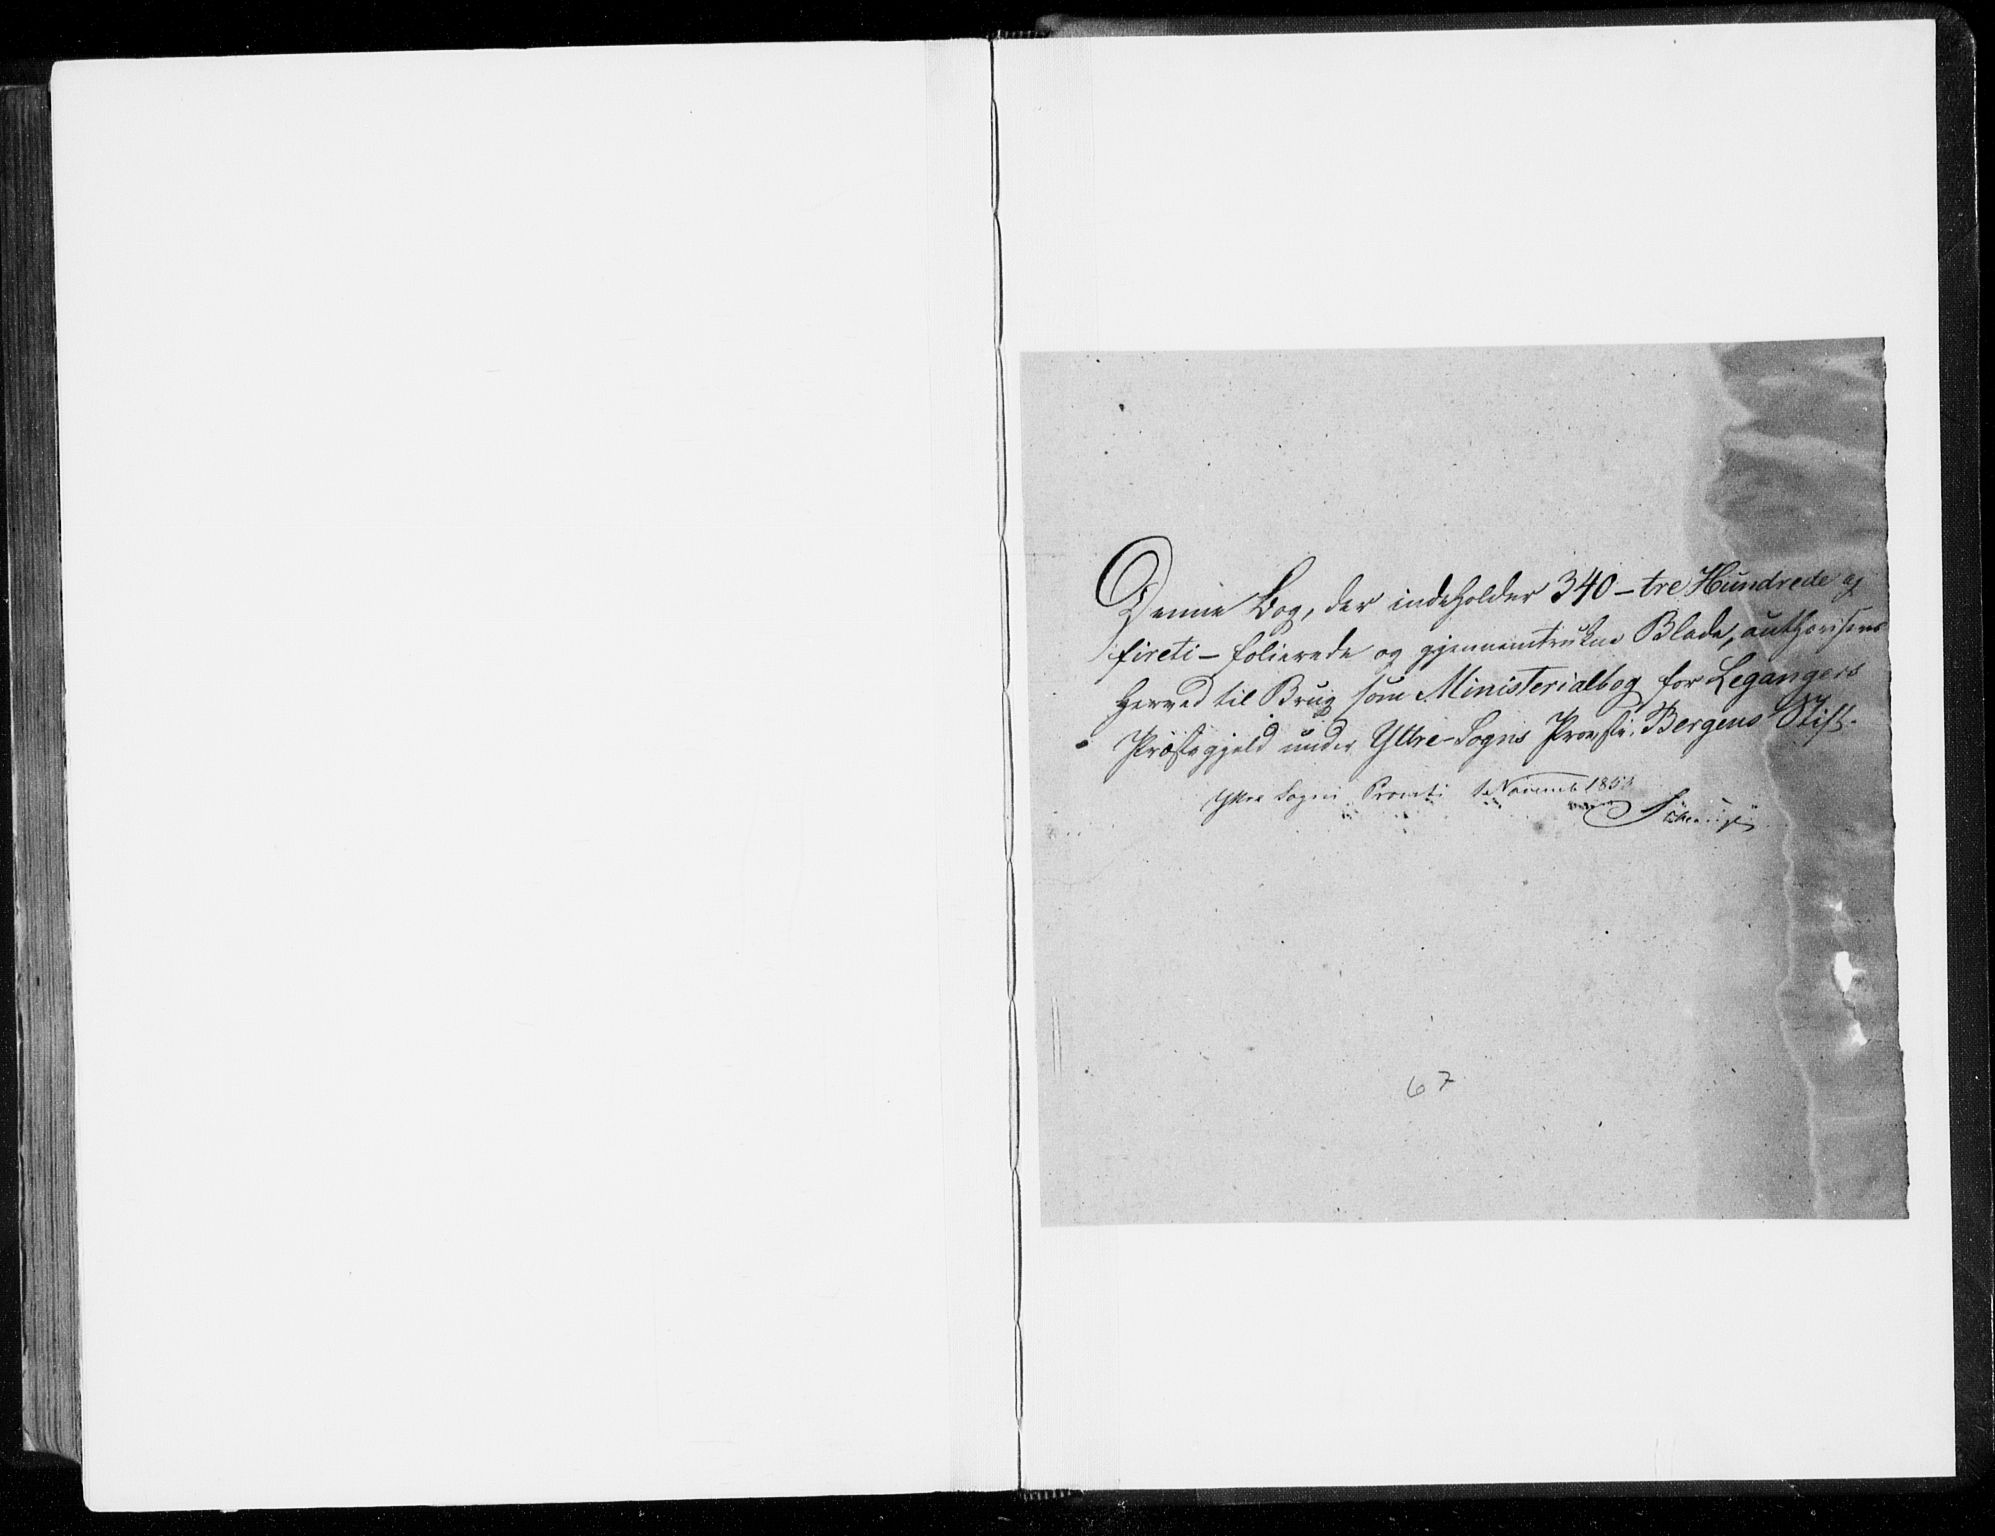 Denne Bog, der indeholder 340 – tre Hundrede og
fireti – folierede og gjennemtrukne Blade, authoriseres
herved til Brug som Ministerialbog for Legangers
Præstegjeld under Yttre-Sogns Provsti, Bergens Stift.
Yttre Sogns Provsti Novemb 185
67